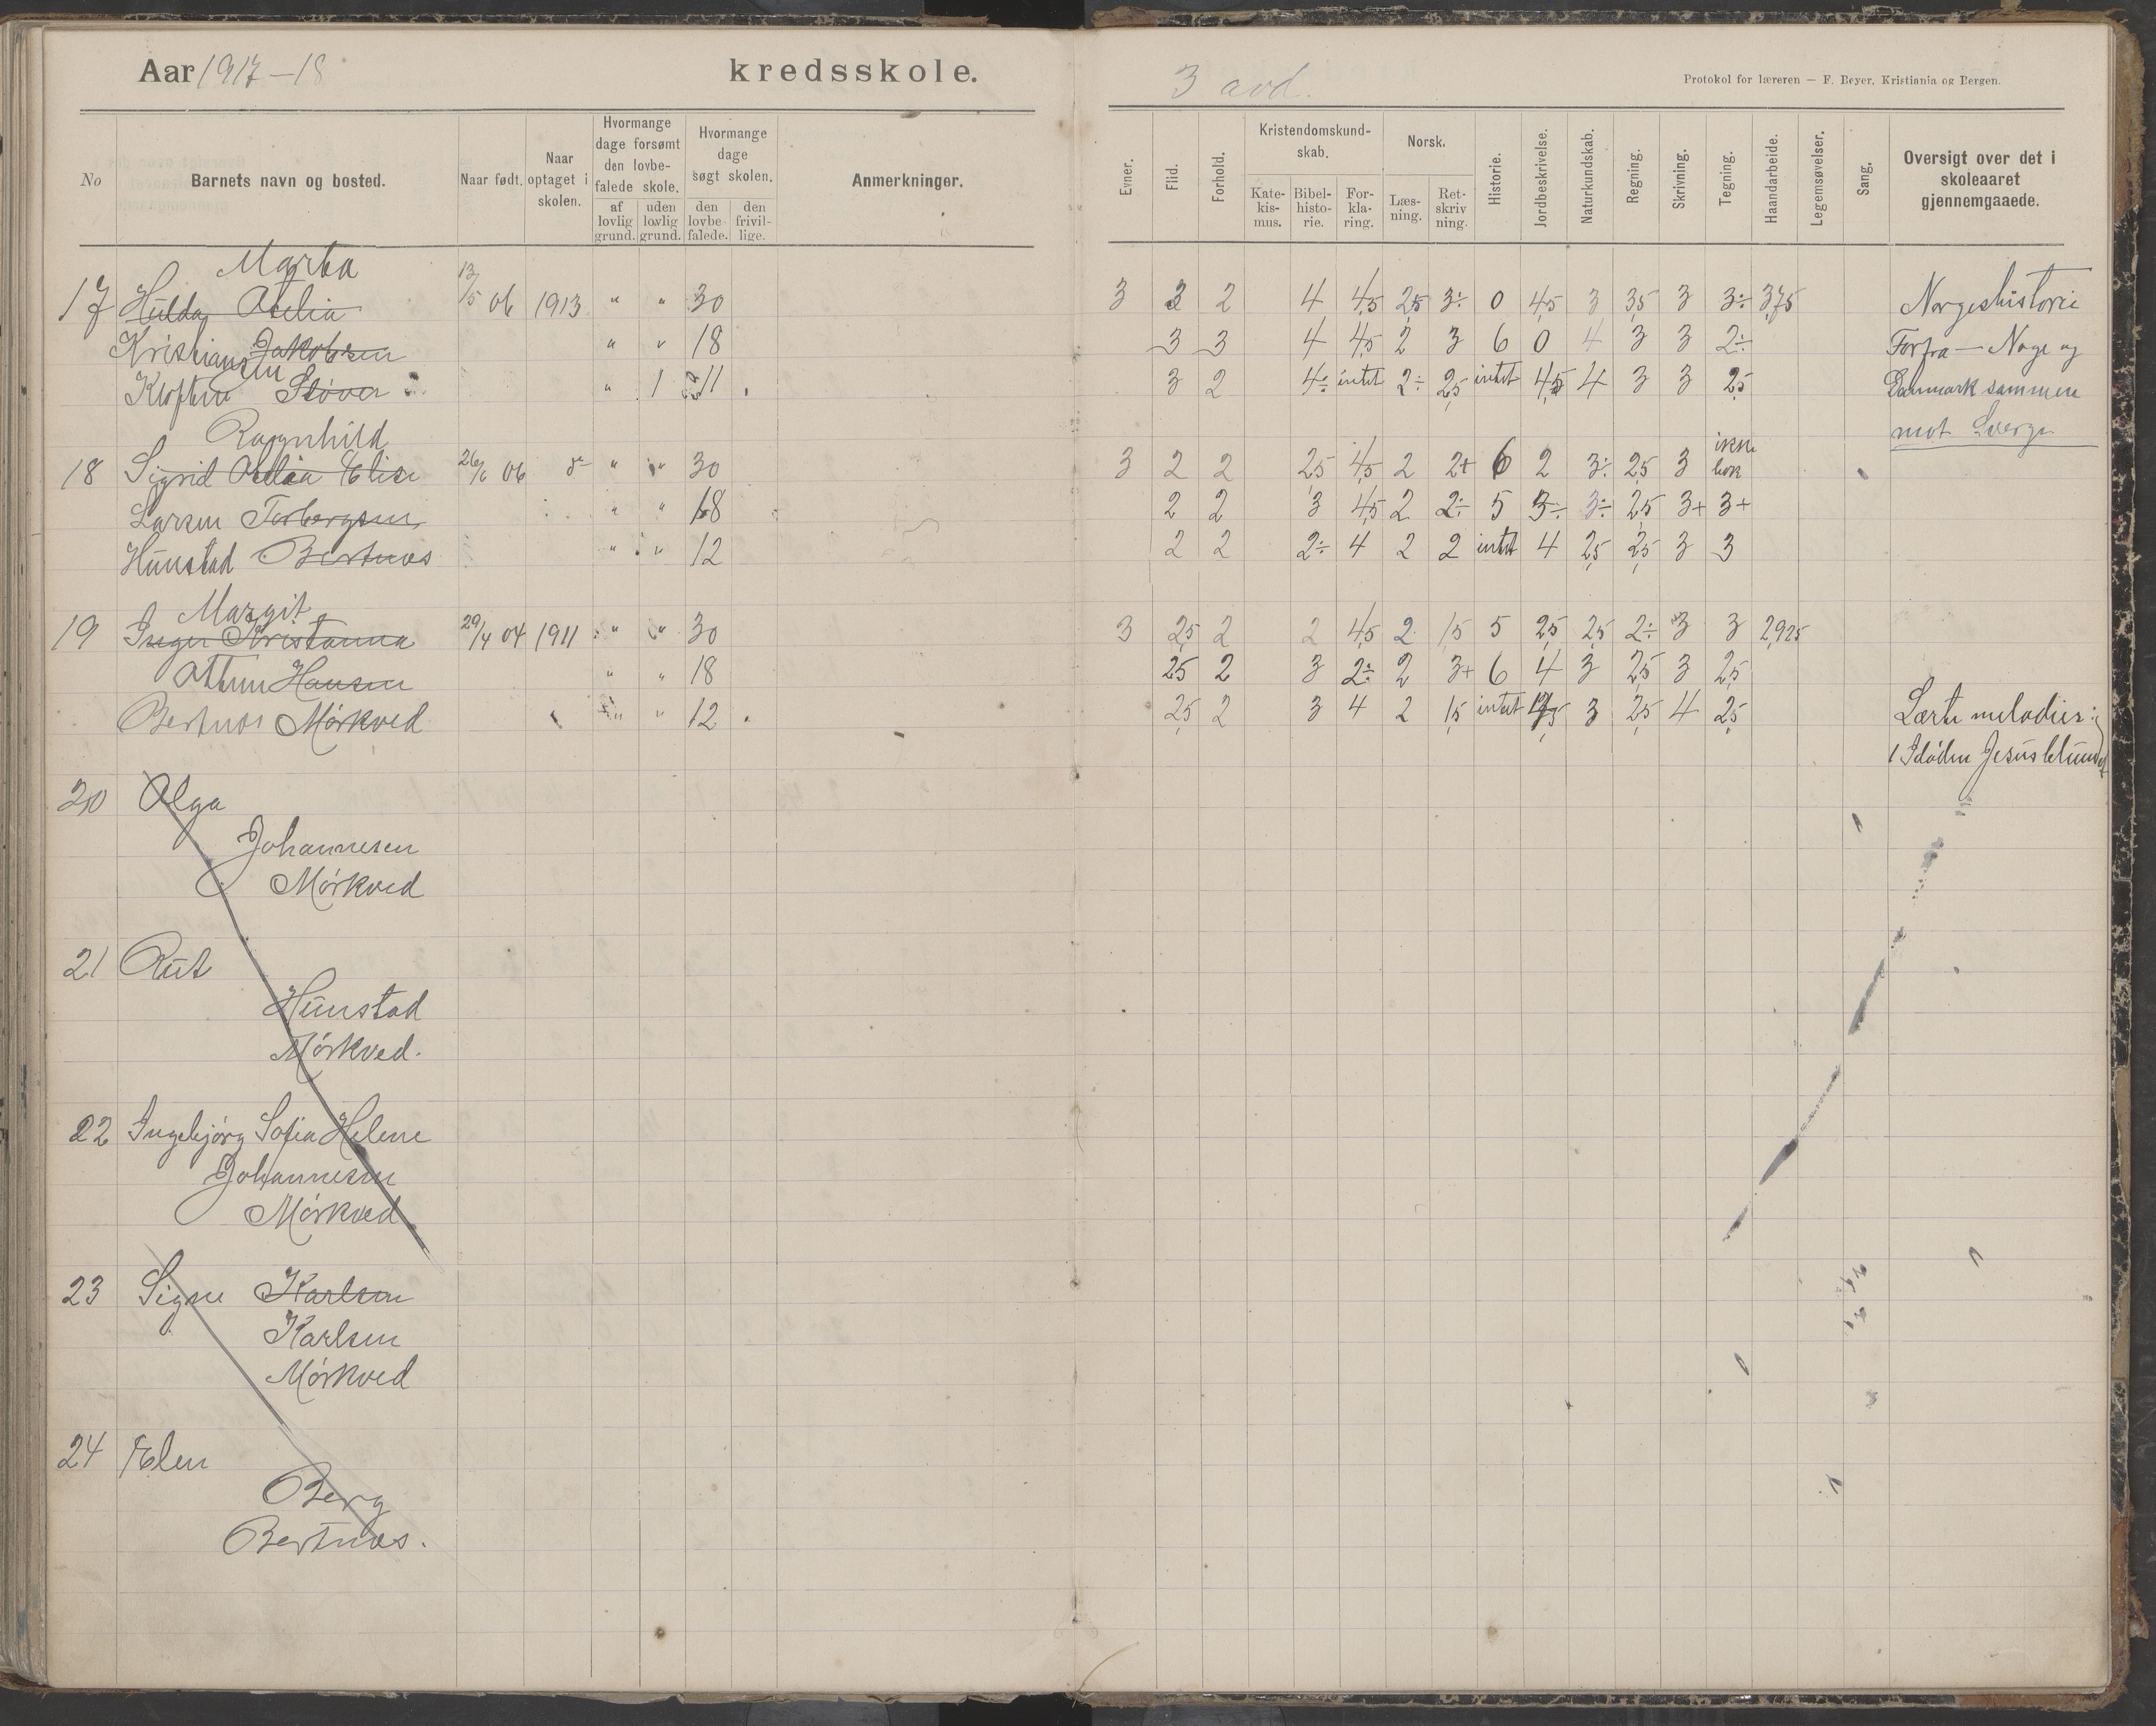 Aar 1917-18 kredsskole.
No
Barnets navn og bosted.
Naar født.
Naar optaget i skolen.
Hvormange dage forsømt den lovbefalede skole.
af lovlig grund.
uden lovlig grund.
Hvormange dage søgt skolen.
den lovbefalede.
den frivillige.
Anmerkninger.
Marta
17 Hulda 13/5 06 1913 " " 30
Kristiansen Jakobsen " " 18
Kloften Støver " 1 11
Ragnhild
18 Sigrid Elise 26/6 06 " " 30
Larsen Torbergsen " " 18
Hunstad Bertnes " " 12
Margit
19 Inger Kristanna 29/4 04 1911 " " 30
Hansen " " 18
Bertnes Mörkved " " 12
20 Olga
Johannesen
Mörkved
21 Rut
Hunstad
Mörkved.
22 Ingebjörg Sofia Helene
Johannesen
Mörkved
23 Signe Karlsen
Karlsen
Mörkved
24 Elen
Berg
Bertnes.
3 avd.
Protokol for læreren — F. Beyer, Kristiania og Bergen.
Evner.
Flid.
Forhold.
Kristendomskundskab.
Katekismus.
Bibelhistorie.
Forklaring.
Norsk.
Læsning.
Retskrivning.
Historie.
Jordbeskrivelse.
Naturkundskab.
Regning.
Skrivning.
Tegning.
Haandarbeide.
Legemsøvelser.
Sang.
Oversigt over det i skoleaaret gjennemgaaede.
3 3 2 4 4,5 2,5 3÷ 0 4,5 3 3,5 3 3÷ 3,75 Norgeshistorie
3 3 4 4,5 2 3 6 0 4 3 3 2÷ Forfra — Noge og
3 2 4÷ intet 2÷ 2,5 intet 4,5 4 3 3 2,5 Danmark sammen
mot Sverge
3 2 2 2,5 4,5 2 2+ 6 2 3÷ 2,5 3 ikke bok
2 2 3 4,5 2 2÷ 5 3÷ 3÷ 2,5 3+ 3+
2 2 2÷ 4 2 2 intet 4 2,5 2,5 3 3
3 2,5 2 2 4,5 2 1,5 5 2,5 2,5 2÷ 3 3 2,925
2,5 2 3 2÷ 2 3+ 6 4 3 2,5 3 2,5
2,5 2 3 4 2 1,5 intet 3 2,5 4 2,5 Lærte melodier:
1 I döden Jesus blunded